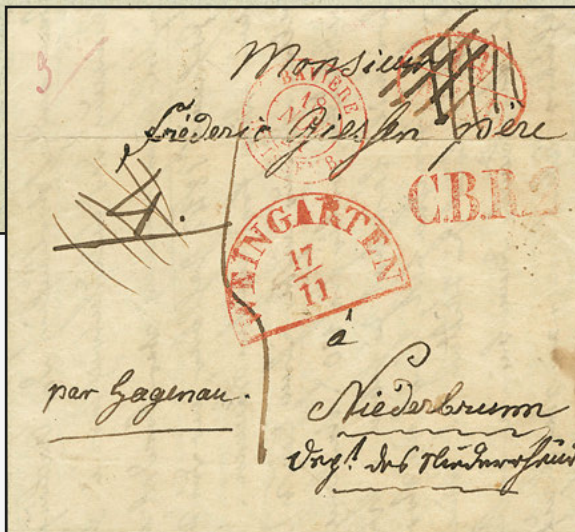 3
Monsieur
BAVIERE
18
Fréderic Giessen père
4.
C.B.R.2
WEINGARTEN
17
11
à
par Hagenau.
Niederbrunn
Dept. des Niederrheins